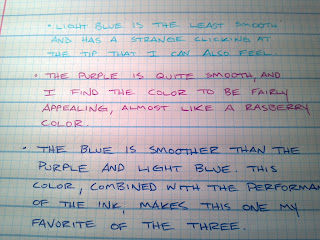 • LIGHT BLUE IS THE LEAST SMOOTH
AND HAS A STRANGE CLICKING AT
THE TIP THAT I CAN ALSO FEEL.
• THE PURPLE IS QUITE SMOOTH, AND
I FIND THE COLOR TO BE FAIRLY
APPEALING, ALMOST LIKE A RASBERRY
COLOR.
• THE BLUE IS SMOOTHER THAN THE
PURPLE AND LIGHT BLUE. THIS
COLOR, COMBINED WITH THE PERFORMAN
OF THE INK, MAKES THIS ONE MY
FAVORITE OF THE THREE.